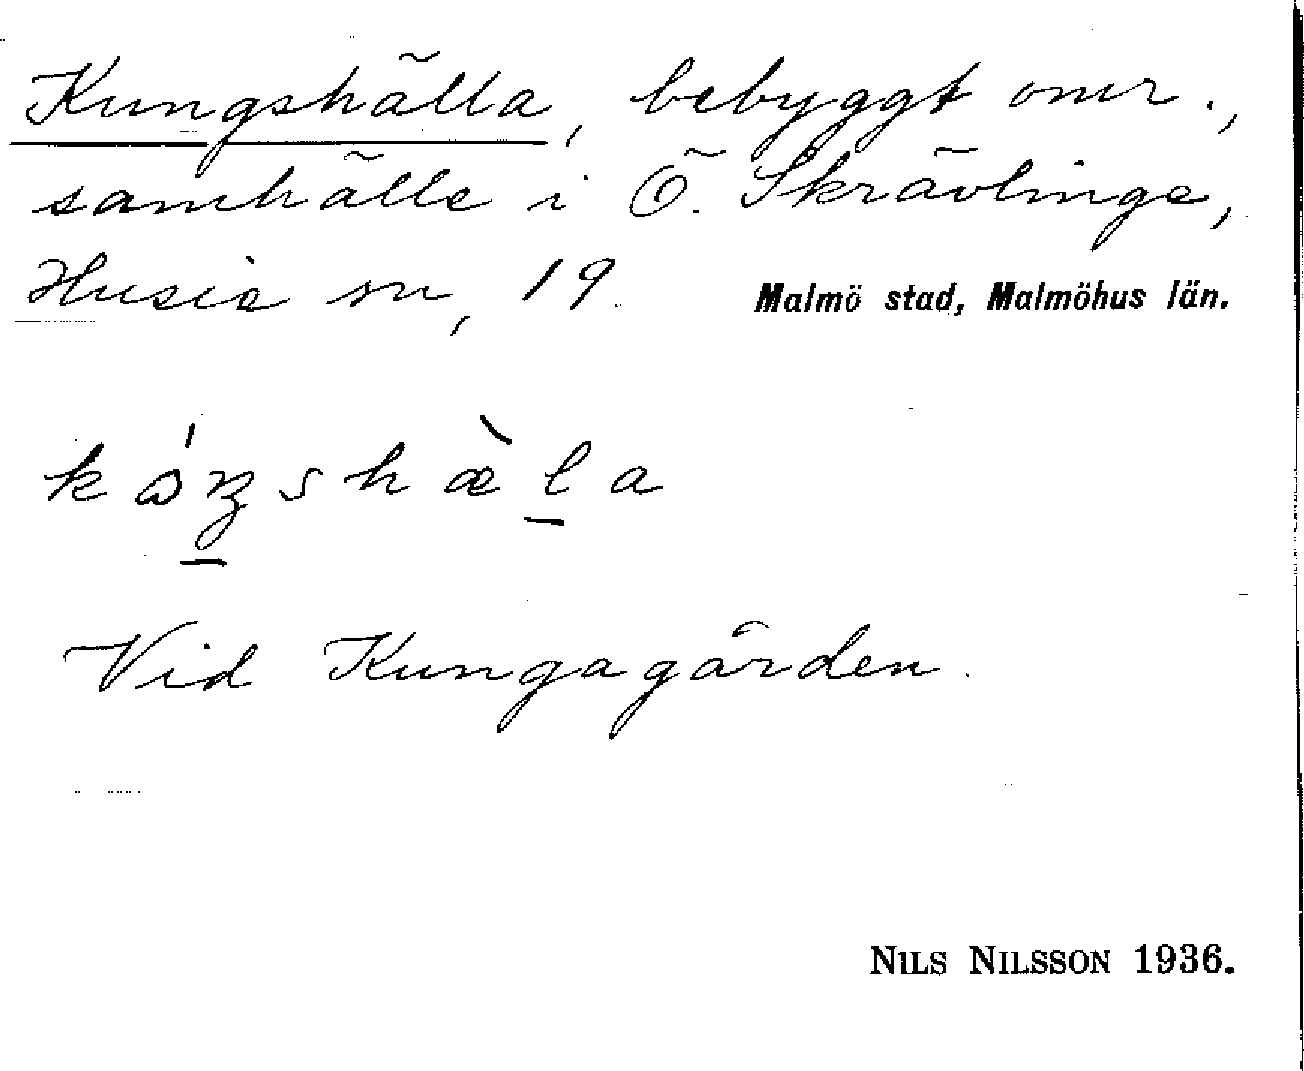 Kungshälla, bebyggt omr.,
samhälle i Ö. Skrävlinge,
Husie sn, 19. Malmö stad, Malmöhus län.
kɷ́ŋshæ̀la
Vid Kungagården.
NILS NILSSON 1936.